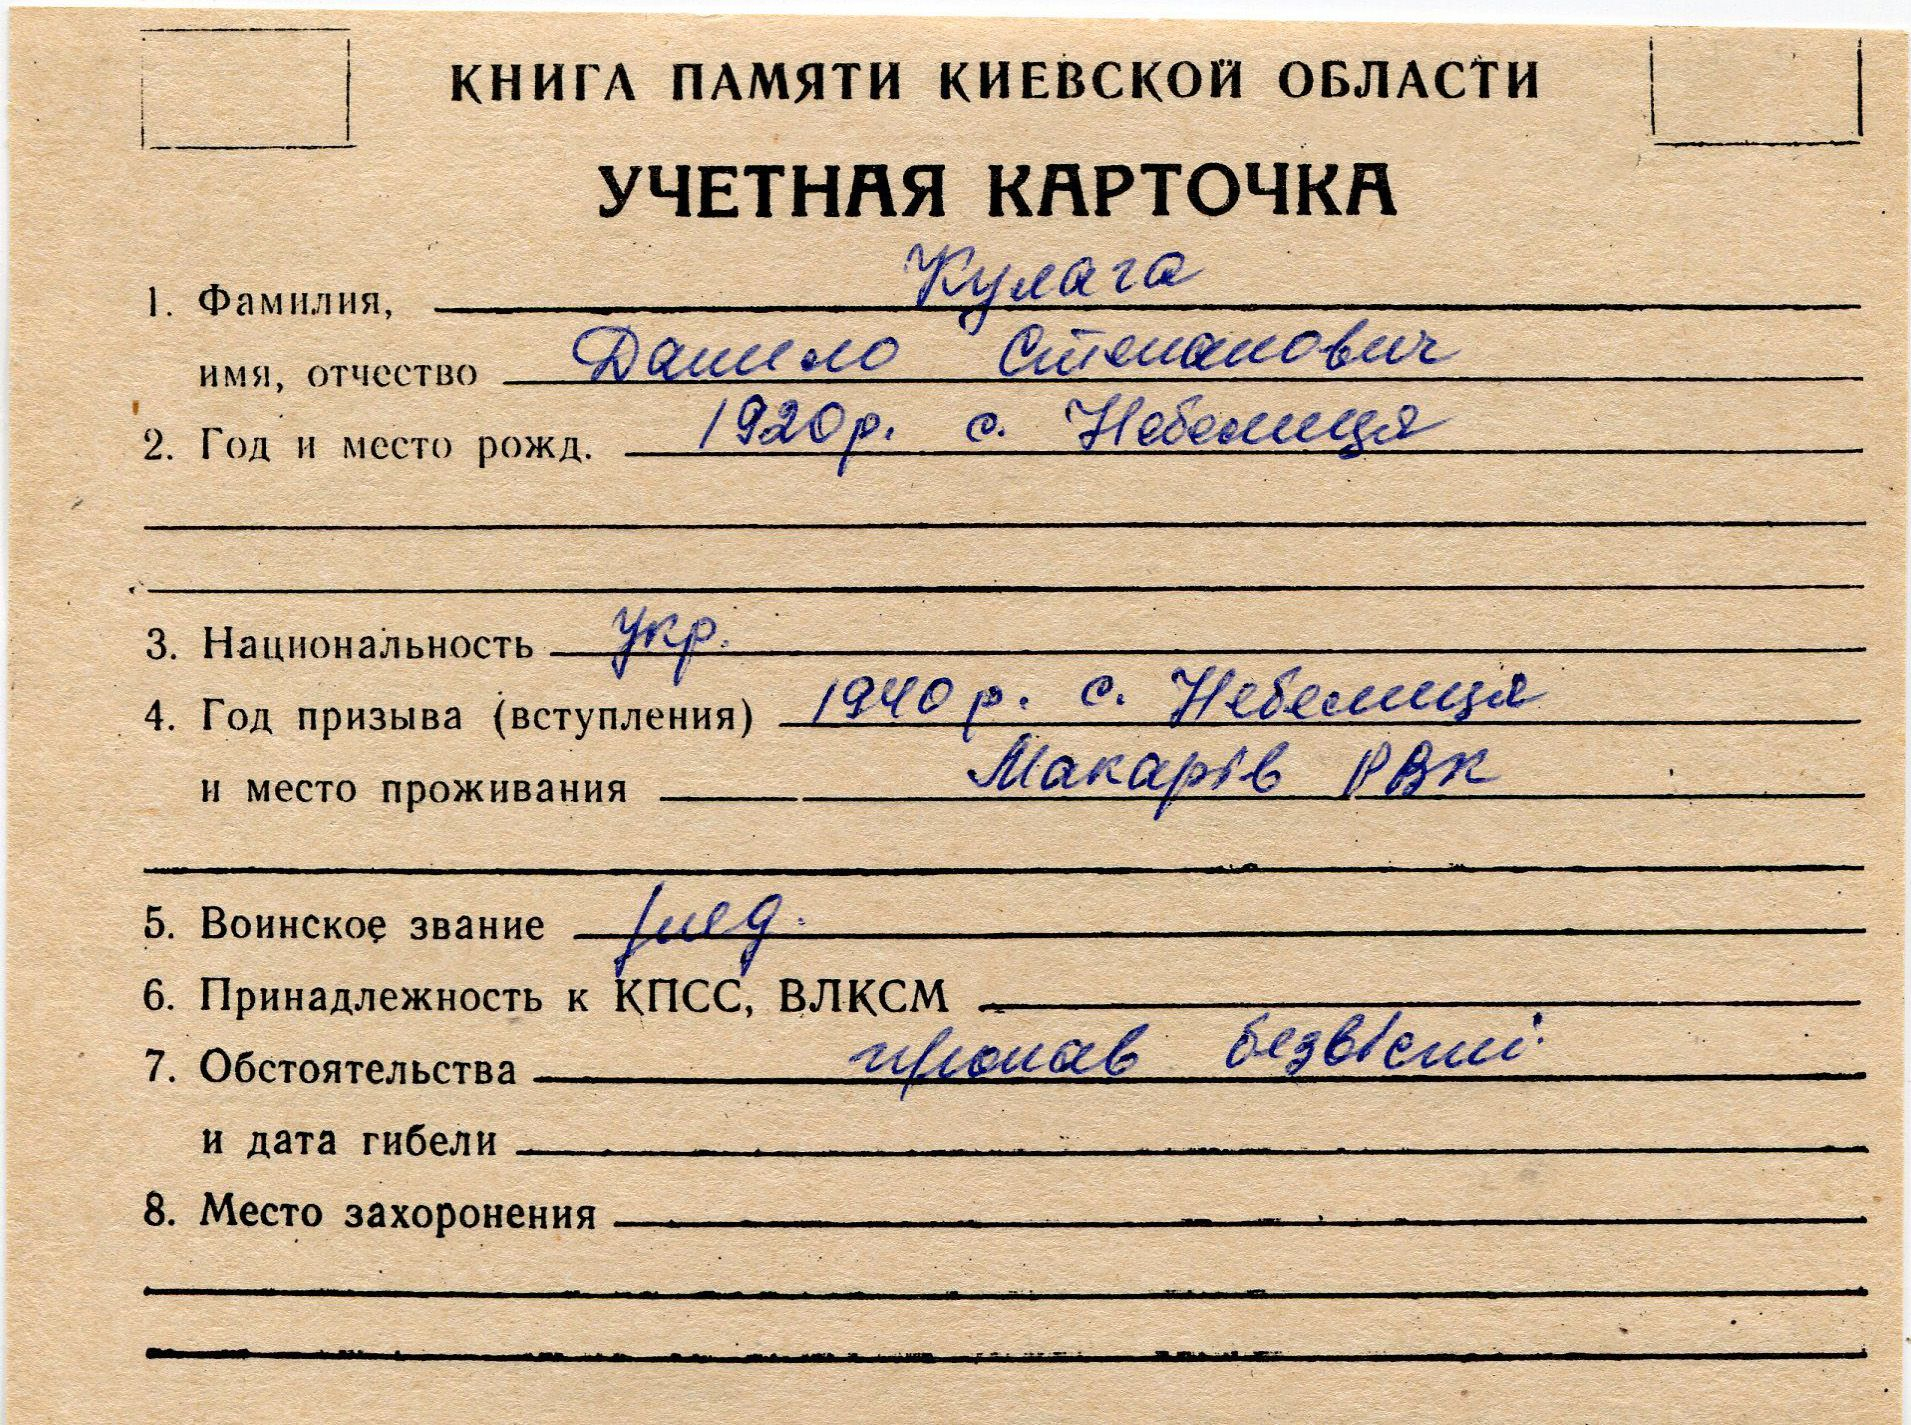 КНИГА ПАМЯТИ КИЕВСКОЙ ОБЛАСТИ
УЧЕТНАЯ КАРТОЧКА
1. Фамилия, Кулага
имя, отчество Данило Степанович
2. Год и место рожд. 1920 р. с. Небелиця
3. Национальность Укр.
4. Год призыва (вступления) 1940 р. с. Небелиця
и место проживания Макарів РВК
5. Воинское звание
6. Принадлежность к КПСС, ВЛКСМ
7. Обстоятельства пропав безвісті
и дата гибели
8. Место захоронения